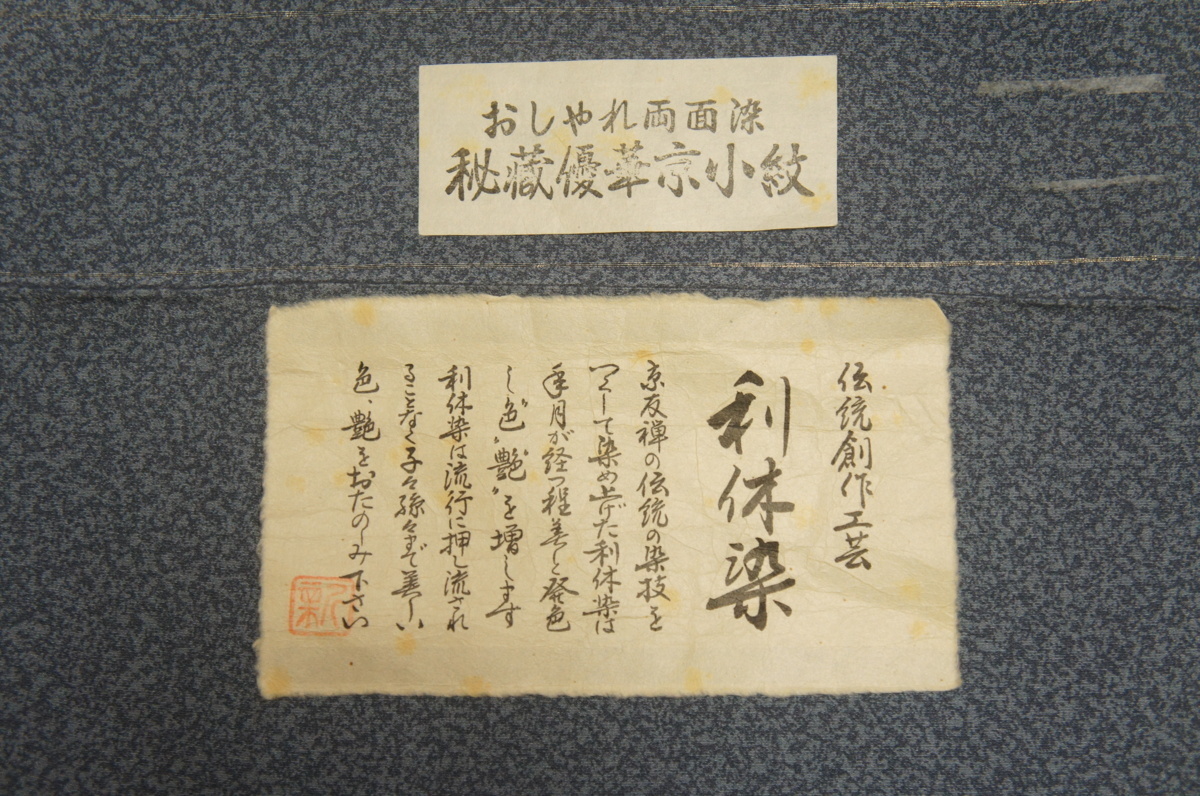 おしやれ両面染
秘蔵優華京小紋
伝統創作工芸
利休染
京友禅の伝統の染技を
つくして染め上げた利休染は
年月が経つ程美しと発色
し〝色〟〝艶〟を増します
利休染は流行に押し流され
ることなく子々孫々まで美しい
色、艶をおたのしみ下さい